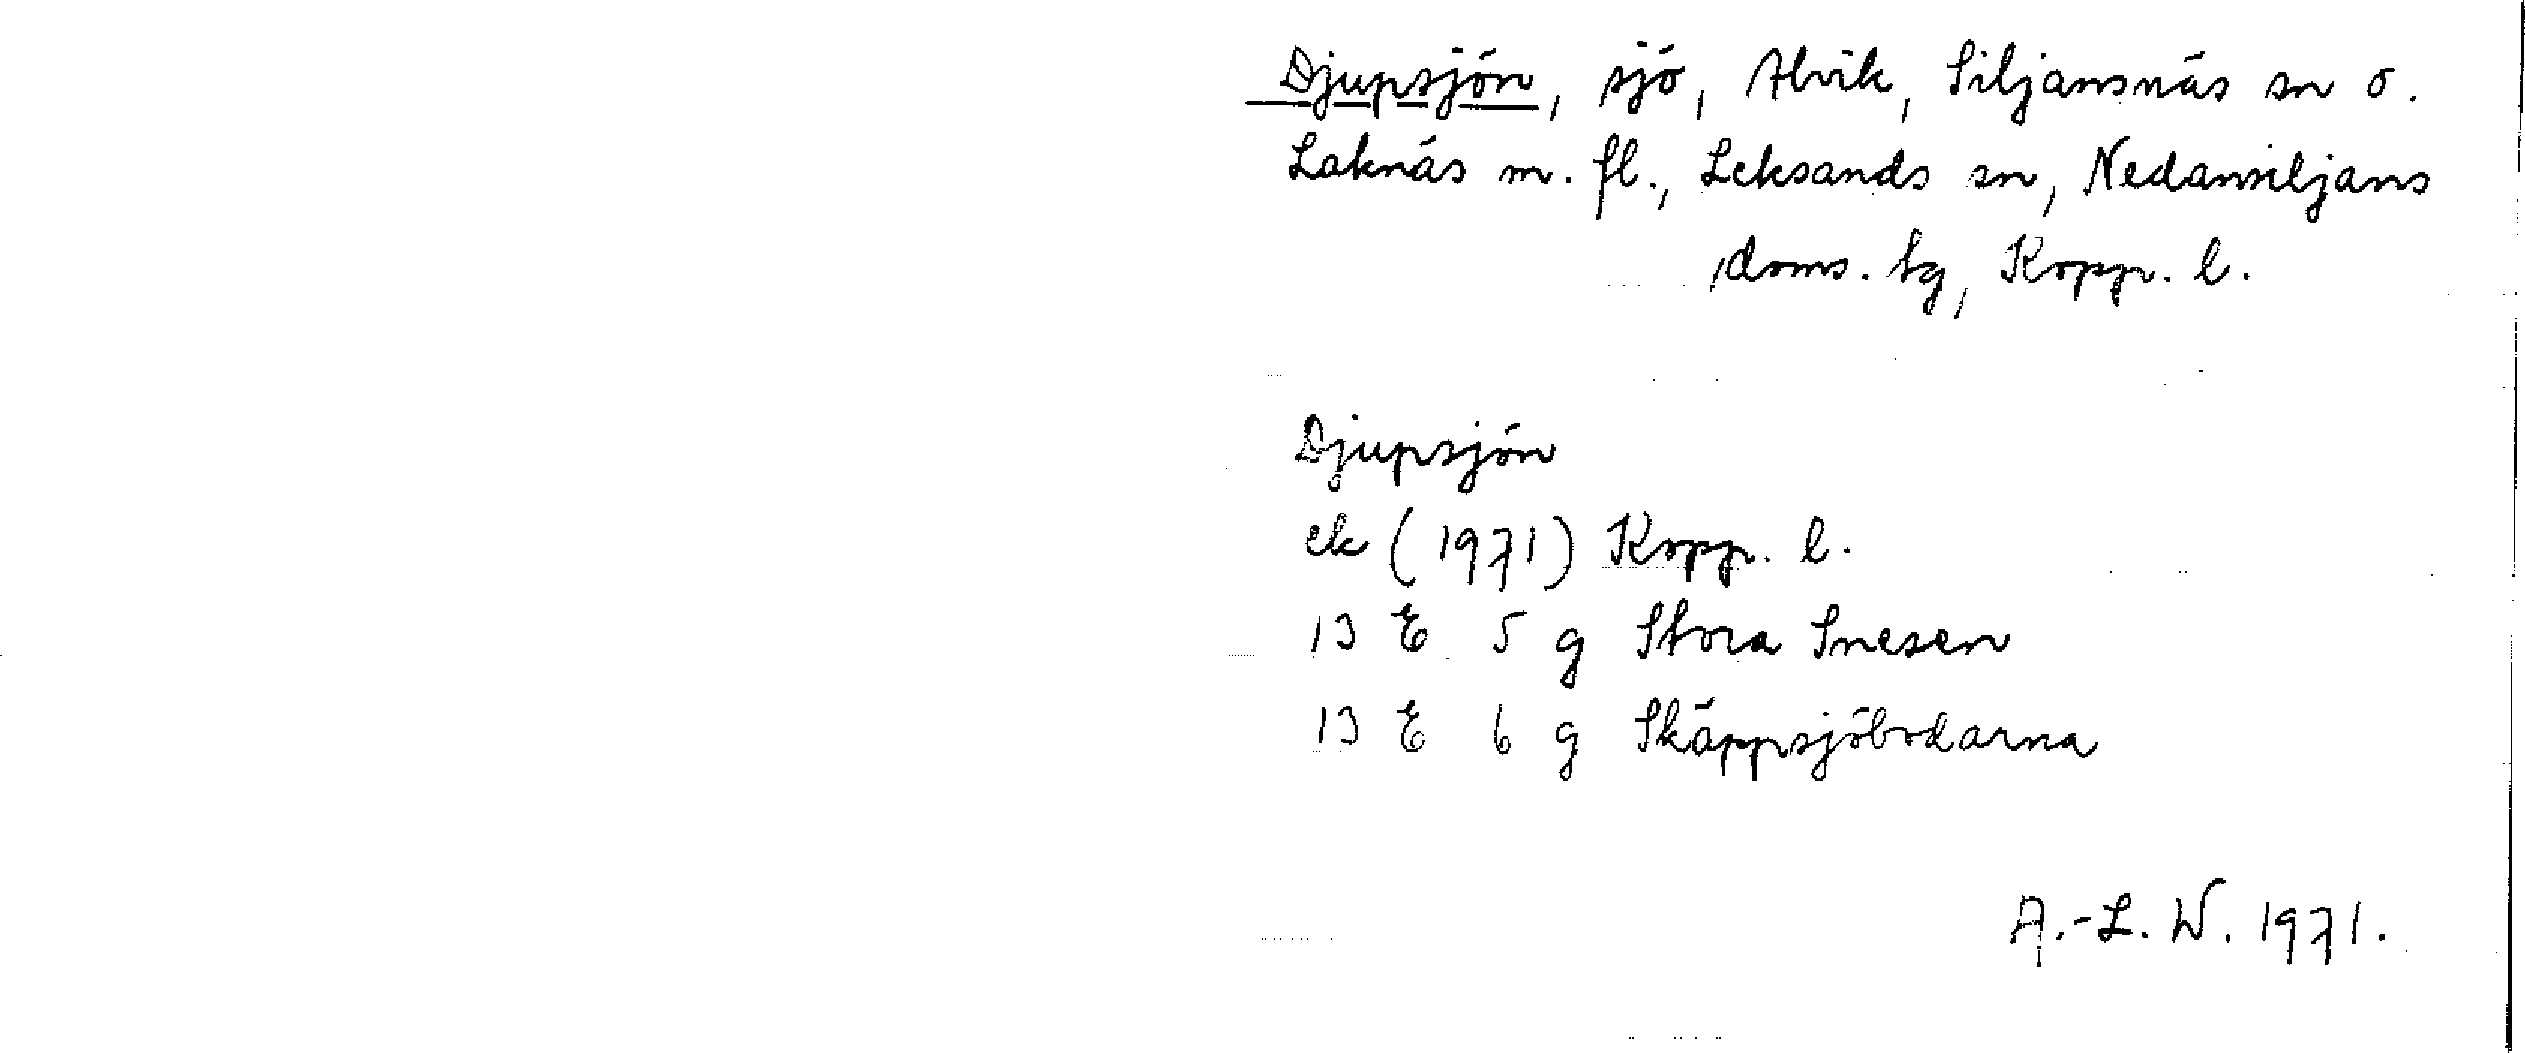 Djupsjön, sjö, Alvik, Siljansnäs sn o.
Laknäs m. fl., Leksands sn, Nedansiljans
doms. tg, Kopp. l.
Djupsjön
ek (1971) Kopp. l.
13 E 5 g Stora Snesen
13 E 6 g Skäppsjöbodarna
A.-L. W. 1971.